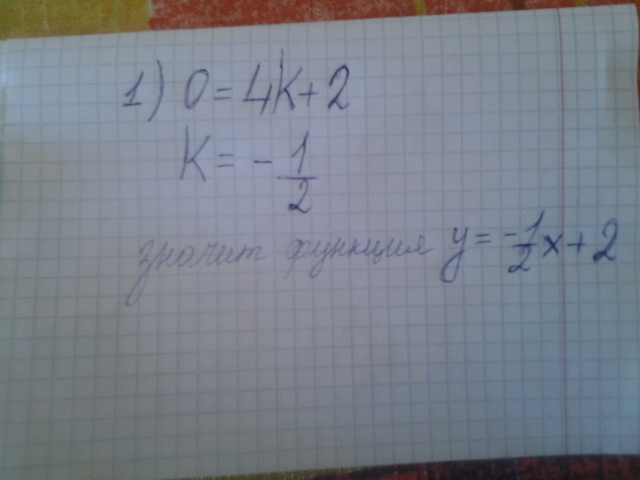 1) 0 = 4K + 2
K = - 1/2
значит функция y = -1/2 x + 2